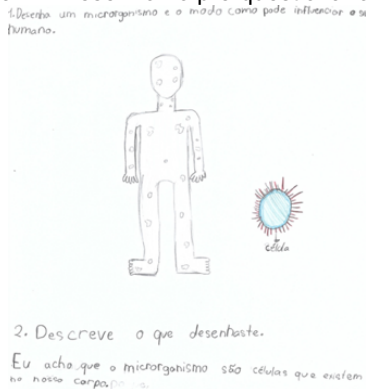 1. Desenha um microrganismo e o modo como pode influenciar o
humano.
célula
2. Descreve o que desenhaste.
Eu acho que o microrganismo são células que existem
no nosso corpo.